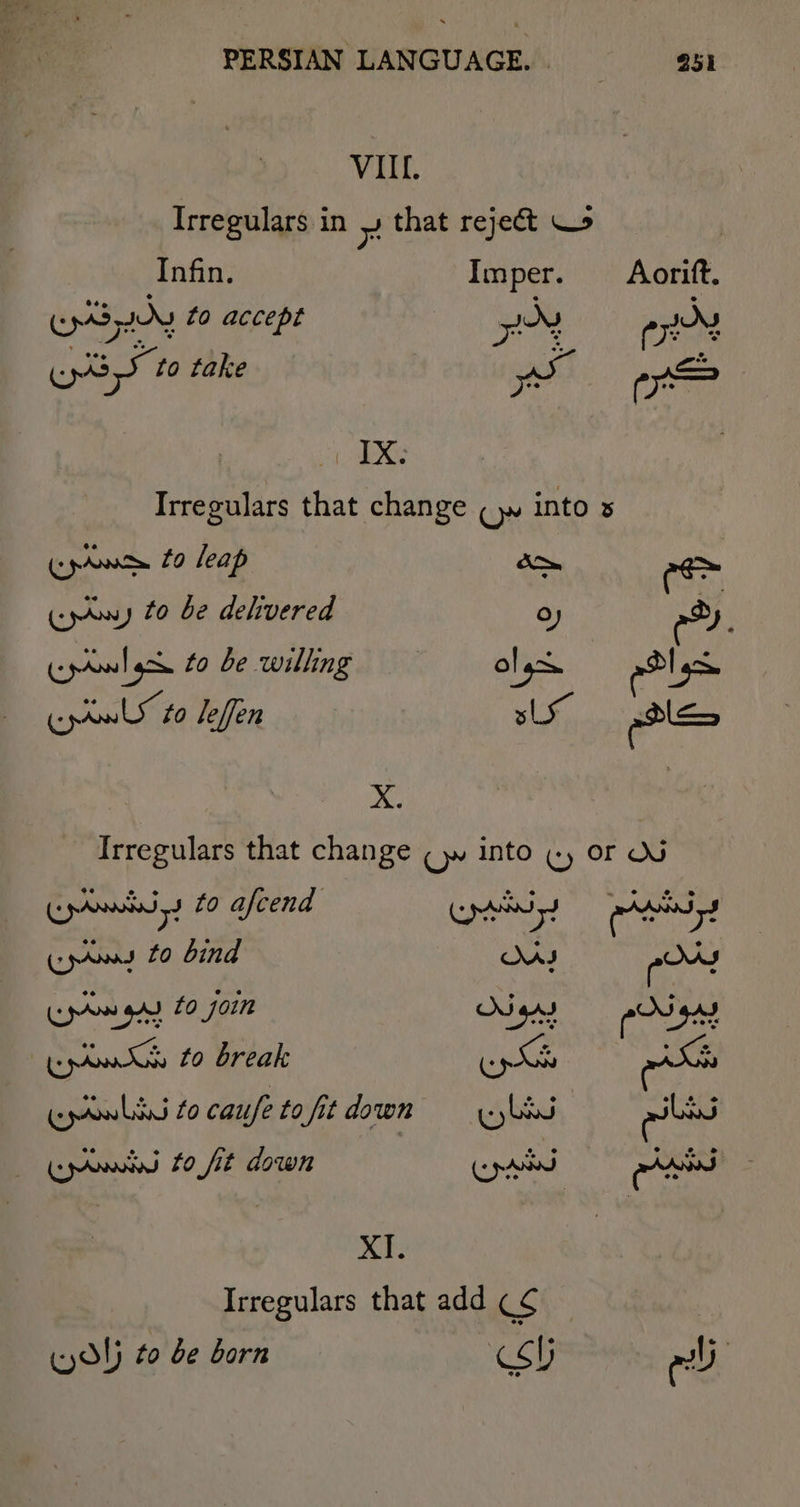 PERSIAN LANGUAGE. 251
VIII.
Irregulars in ير that reject ف
Infin. Imper. Aorist.
پذيرفتن to accept پذير پذيرم
گرفتن to take گير گيرم
IX.
Irregulars that change س into ه
جستن to leap جه جهم
رستن to be delivered ره رهم
خواستن to be willing خواه خواهم
كاستن to lessen كاه كاهم
X.
Irregulars that change س into ن or ند
برنشستن to ascend برنشين برنشينم
بستن to bind بند بندم
پيوستن to join پيوند پيوندم
شكستن to break شكن شكنم
نشاستن to cause to sit down نشان نشانم
نشستن to sit down نشين نشينم
XI.
Irregulars that add ي
زادن to be born زاي زايم